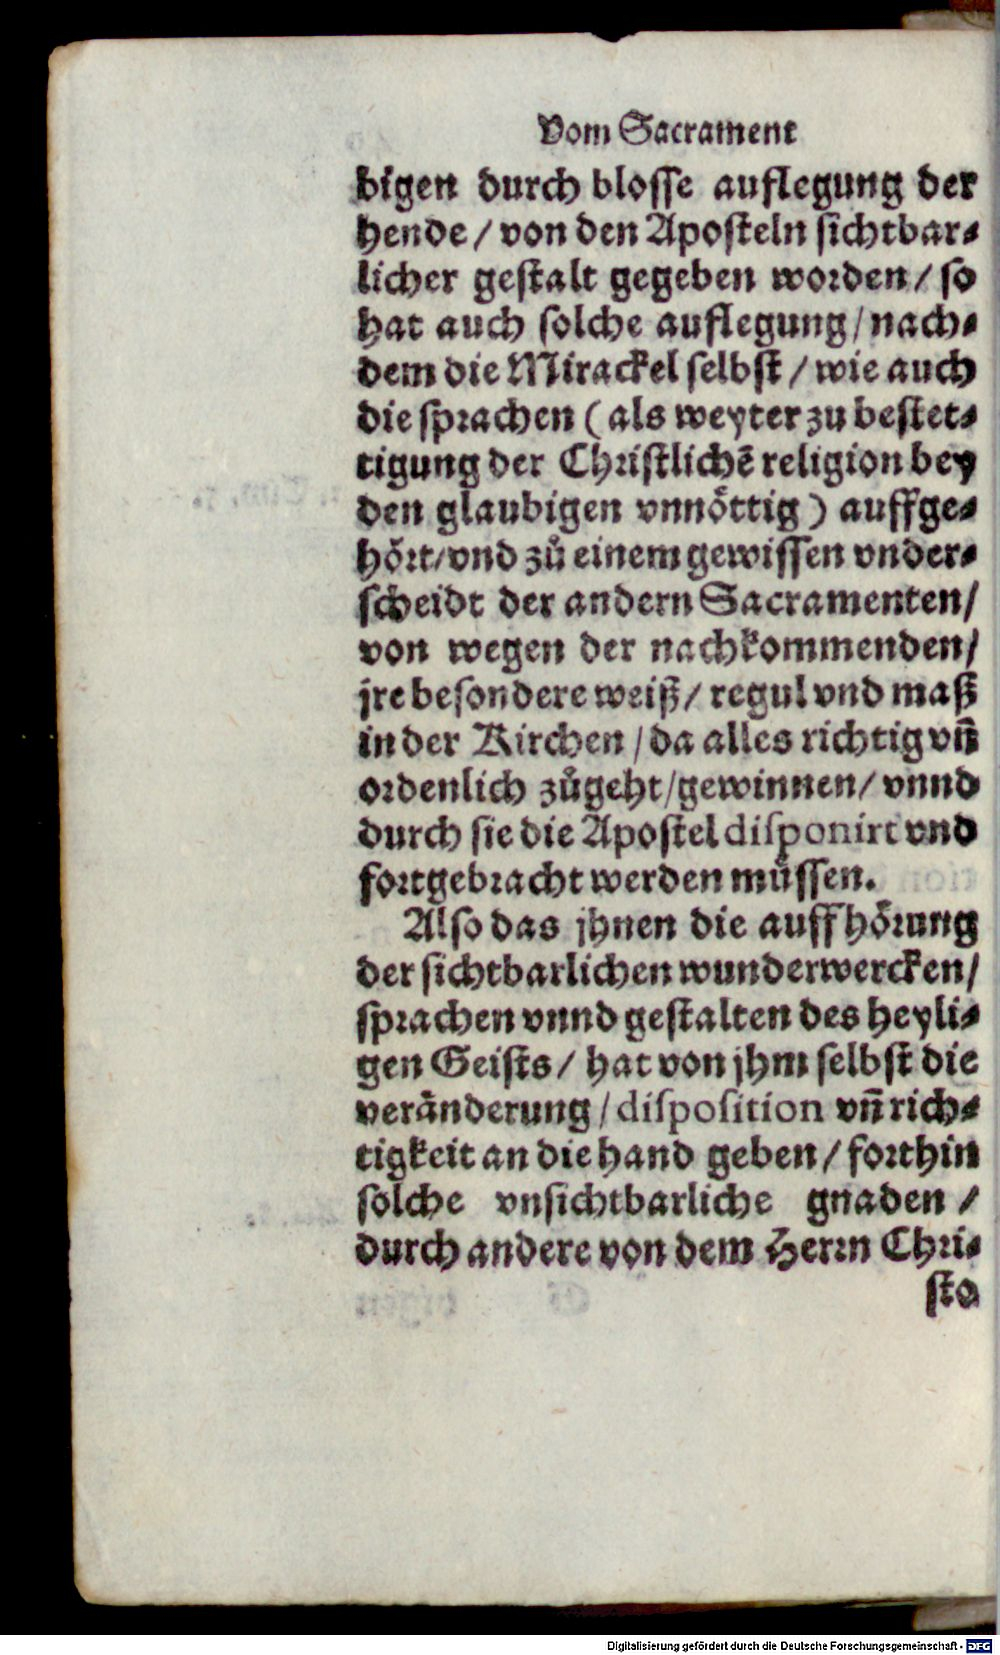 Vom Sacrament
bigen durch blosse auflegung der
hende / von den Aposteln sichtbar⸗
licher gestalt gegeben worden / so
hat auch solche auflegung / nach⸗
dem die Mirackel selbst / wie auch
die sprachen ( als weyter zu bestet⸗
tigung der Christlichē religion bey
den glaubigen vnnöttig ) auffge⸗
hört / vnd zů einem gewissen vnder⸗
scheidt der andern Sacramenten /
von wegen der nachkommenden /
jre besondere weiß / regul vnd maß
in der Kirchen / da alles richtig vñ
ordenlich zůgeht / gewinnen / vnnd
durch sie die Apostel disponirt vnd
fortgebracht werden müssen.
Also das jhnen die auffhörung
der sichtbarlichen wunderwercken /
sprachen vnnd gestalten des heyli⸗
gen Geists / hat von jhm selbst die
veränderung / disposition vñ rich⸗
tigkeit an die hand geben / forthin
solche vnsichtbarliche gnaden /
durch andere von dem Herrn Chri⸗
sto
Digitalisierung gefördert durch die Deutsche Forschungsgemeinschaft - DFG